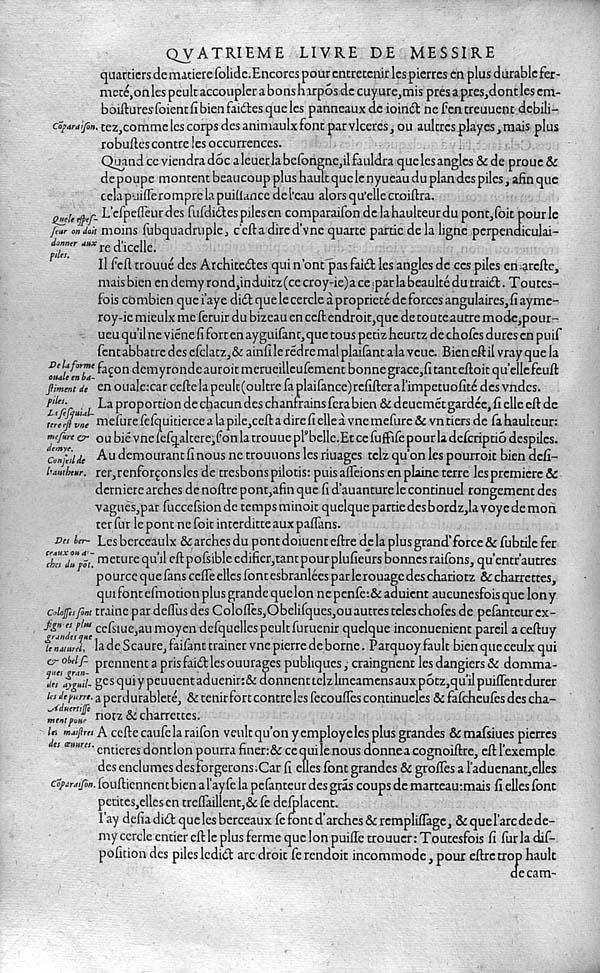 QVATRIEME LIVRE DE MESSIRE
quartiers de matiere solide. Encores pour entretenir les pierres en plus durable fer-
meté, on les peult accoupler a bons harpōs de cuyure, mis pres a pres, dont les em-
boistures soient si bien faictes que les panneaux de ioinct ne s'en treuuent debili-
Cōparaison.
tez, comme les corps des animaulx sont par vlceres, ou aultres playes, mais plus
robustes contre les occurrences.
Quand ce viendra dōc a leuer la besongne, il fauldra que les angles & de proue &
de poupe montent beaucoup plus hault que le nyueau du plan des piles, afin que
cela puisse rompre la puissance de l'eau alors qu'elle croistra.
Quele espes-
seur on doit
donner aux
piles.
L'espesseur des susdictes piles en comparaison de la haulteur du pont, soit pour le
moins subquadruple, c'est a dire d'vne quarte partie de la ligne perpendiculai-
re d'icelle.
Il s'est trouué des Architectes qui n'ont pas faict les angles de ces piles en areste,
mais bien en demy rond, induitz (ce croy-ie) a ce par la beaulté du traict. Toutes-
fois combien que i'aye dict que le cercle à proprieté de forces angulaires, si ayme-
roy-ie mieulx me seruir du bizeau en cest endroit, que de toute autre mode, pour-
ueu qu'il ne viēne si fort en ayguisant, que tous petiz heurtz de choses dures en puis
sent abbatre des esclatz, & ainsi le rēdre mal plaisant a la veue. Bien est il vray que la
De la forme
ouale en ba-
stiment de
piles.
façon demyronde auroit merueilleusement bonne grace, si tant estoit qu'elle feust
en ouale: car ceste la peult (oultre sa plaisance) resister a l'impetuosité des vndes.
Le sesquial-
tere est vne
mesure &
demye.
La proportion de chacun des chanfrains sera bien & deuemēt gardée, si elle est de
mesure sesquitierce a la pile, cest a dire si elle à vne mesure & vn tiers de sa haulteur:
ou biē vne sesq̄altere, s'on la trouue pl' belle. Et ce suffise pour la descriptiō des piles.
Conseil de
l'autheur.
Au demourant si nous ne trouuons les riuages telz qu'on les pourroit bien desi-
rer, renforçons les de tresbons pilotis: puis asseions en plaine terre les premiere &
derniere arches de nostre pont, afin que si d'auanture le continuel rongement des
vagues, par succession de temps minoit quelque partie des bordz, la voye de mon
ter sur le pont ne soit interditte aux passans.
Des ber-
ceaux ou ar-
ches du pōt.
Les berceaulx & arches du pont doiuent estre de la plus grand' force & subtile fer
meture qu'il est possible edifier, tant pour plusieurs bonnes raisons, qu'entr'autres
pource que sans cesse elles sont esbranlées par le rouage des chariotz & charrettes,
qui font esmotion plus grande que lon ne pense: & aduient aucunesfois que lon y
Colosses sont
figures plus
grandes que
le naturel,
& obelis-
ques gran-
des ayguil-
les de pierre.
traine par dessus des Colosses, Obelisques, ou autres teles choses de pesanteur ex-
cessiue, au moyen desquelles peult suruenir quelque inconuenient pareil a cestuy
la de Scaure, faisant trainer vne pierre de borne. Parquoy fault bien que ceulx qui
prennent a pris faict les ouurages publiques, craingnent les dangiers & domma-
ges qui y peuuent aduenir: & donnent telz lineamens aux pōtz, qu'il puissent durer
a perdurableté, & tenir fort contre les secousses continueles & fascheuses des cha-
riotz & charrettes.
Aduertisse
ment pour
les maistres
des œuures.
A ceste cause la raison veult qu'on y employe les plus grandes & massiues pierres
entieres dont lon pourra finer: & ce qui le nous donne a cognoistre, est l'exemple
des enclumes des forgerons: Car si elles sont grandes & grosses a l'aduenant, elles
Cōparaison.
soustiennent bien a l'ayse la pesanteur des grās coups de marteau: mais si elles sont
petites, elles en tressaillent, & se desplacent.
I'ay desia dict que les berceaux se font d'arches & remplissage, & que l'arc de de-
my cercle entier est le plus ferme que lon puisse trouuer: Toutesfois si sur la dis-
position des piles ledict arc droit se rendoit incommode, pour estre trop hault
de cam-